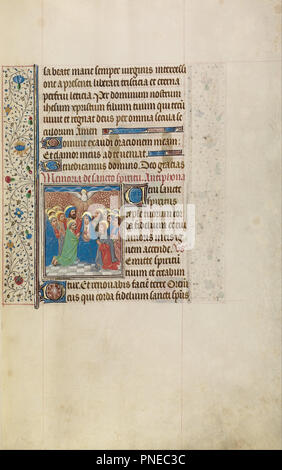 sa beate marie semper virginis intercessi
one a presenti liberari tristicia et eterna
perfrui leticia Per dominum nostrum
ihesum xpistum filium tuum qui tecū
vivit et regnat deus per omnia secula se
culorum Amen
Domine exaudi orationem meam
Et clamor meus ad te veniat
Benedicamus domino Deo gracias
Memoria de sancto spiritu Antiphona
Veni sancte
spiritus
reple tuorum cor
da fidelium
et tui amoris in eis ig
nem accende
Emitte spiritū
tuum et creabun
tur Et renovabis faciē terre Oro
Deus qui corda fidelium sancti spūs
alamy
PNEC3C
www.alamy.com